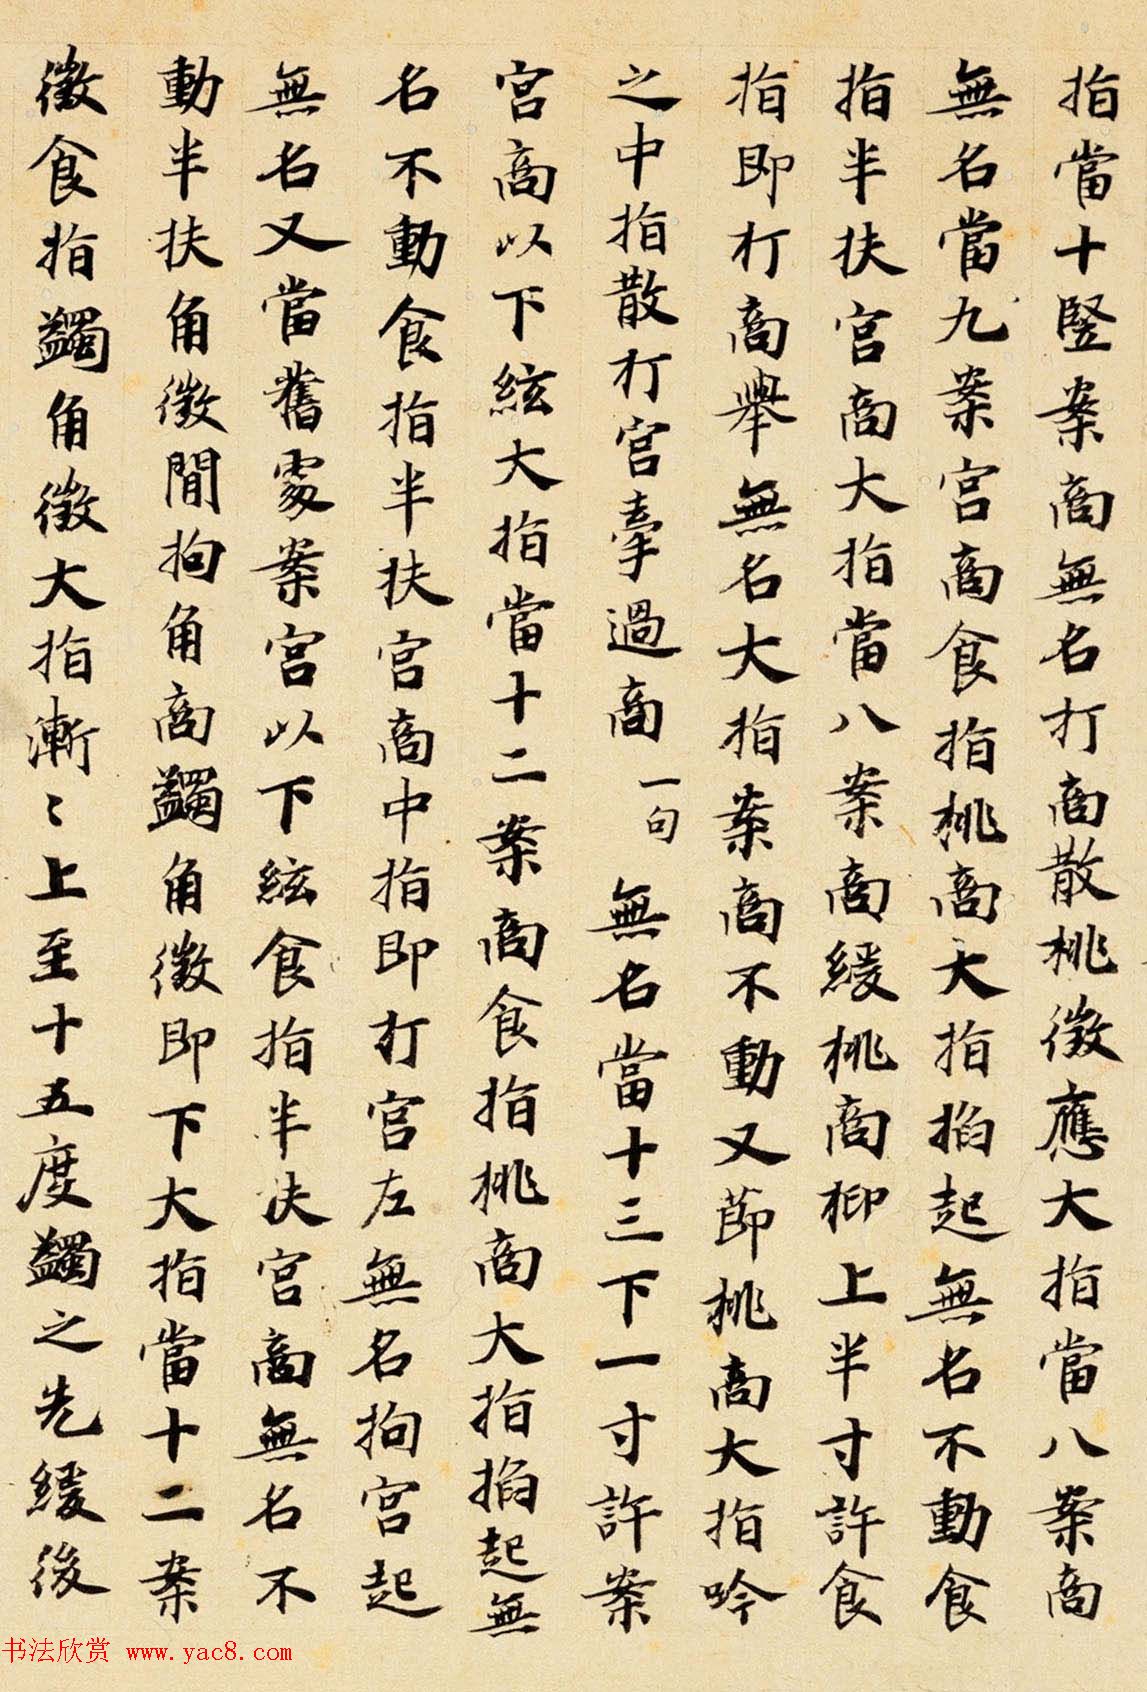 指當十竪案商無名打商散桃徵應大指當八案商
無名當九案宮商食指桃商大指掐起無名不動食
指半扶宮商大指當八案商緩桃商枊上半寸許食
指即打商舉無名大指案商不動又節桃商大指吟
之中指散打宮牽過商一句 無名當十三下一寸許案
宮商以下絃大指當十二案商食指桃商大指掐起無
名不動食指半扶宮商中指即打宮左無名拘宮起
無名又當舊處案宮以下絃食指半扶宮商無名不
動半扶角徵閒拘角商蠲角徵即下大指當十二案
徵食指蠲角徵大指漸〻上至十五度蠲之先緩後
书法欣赏 www.yac8.com